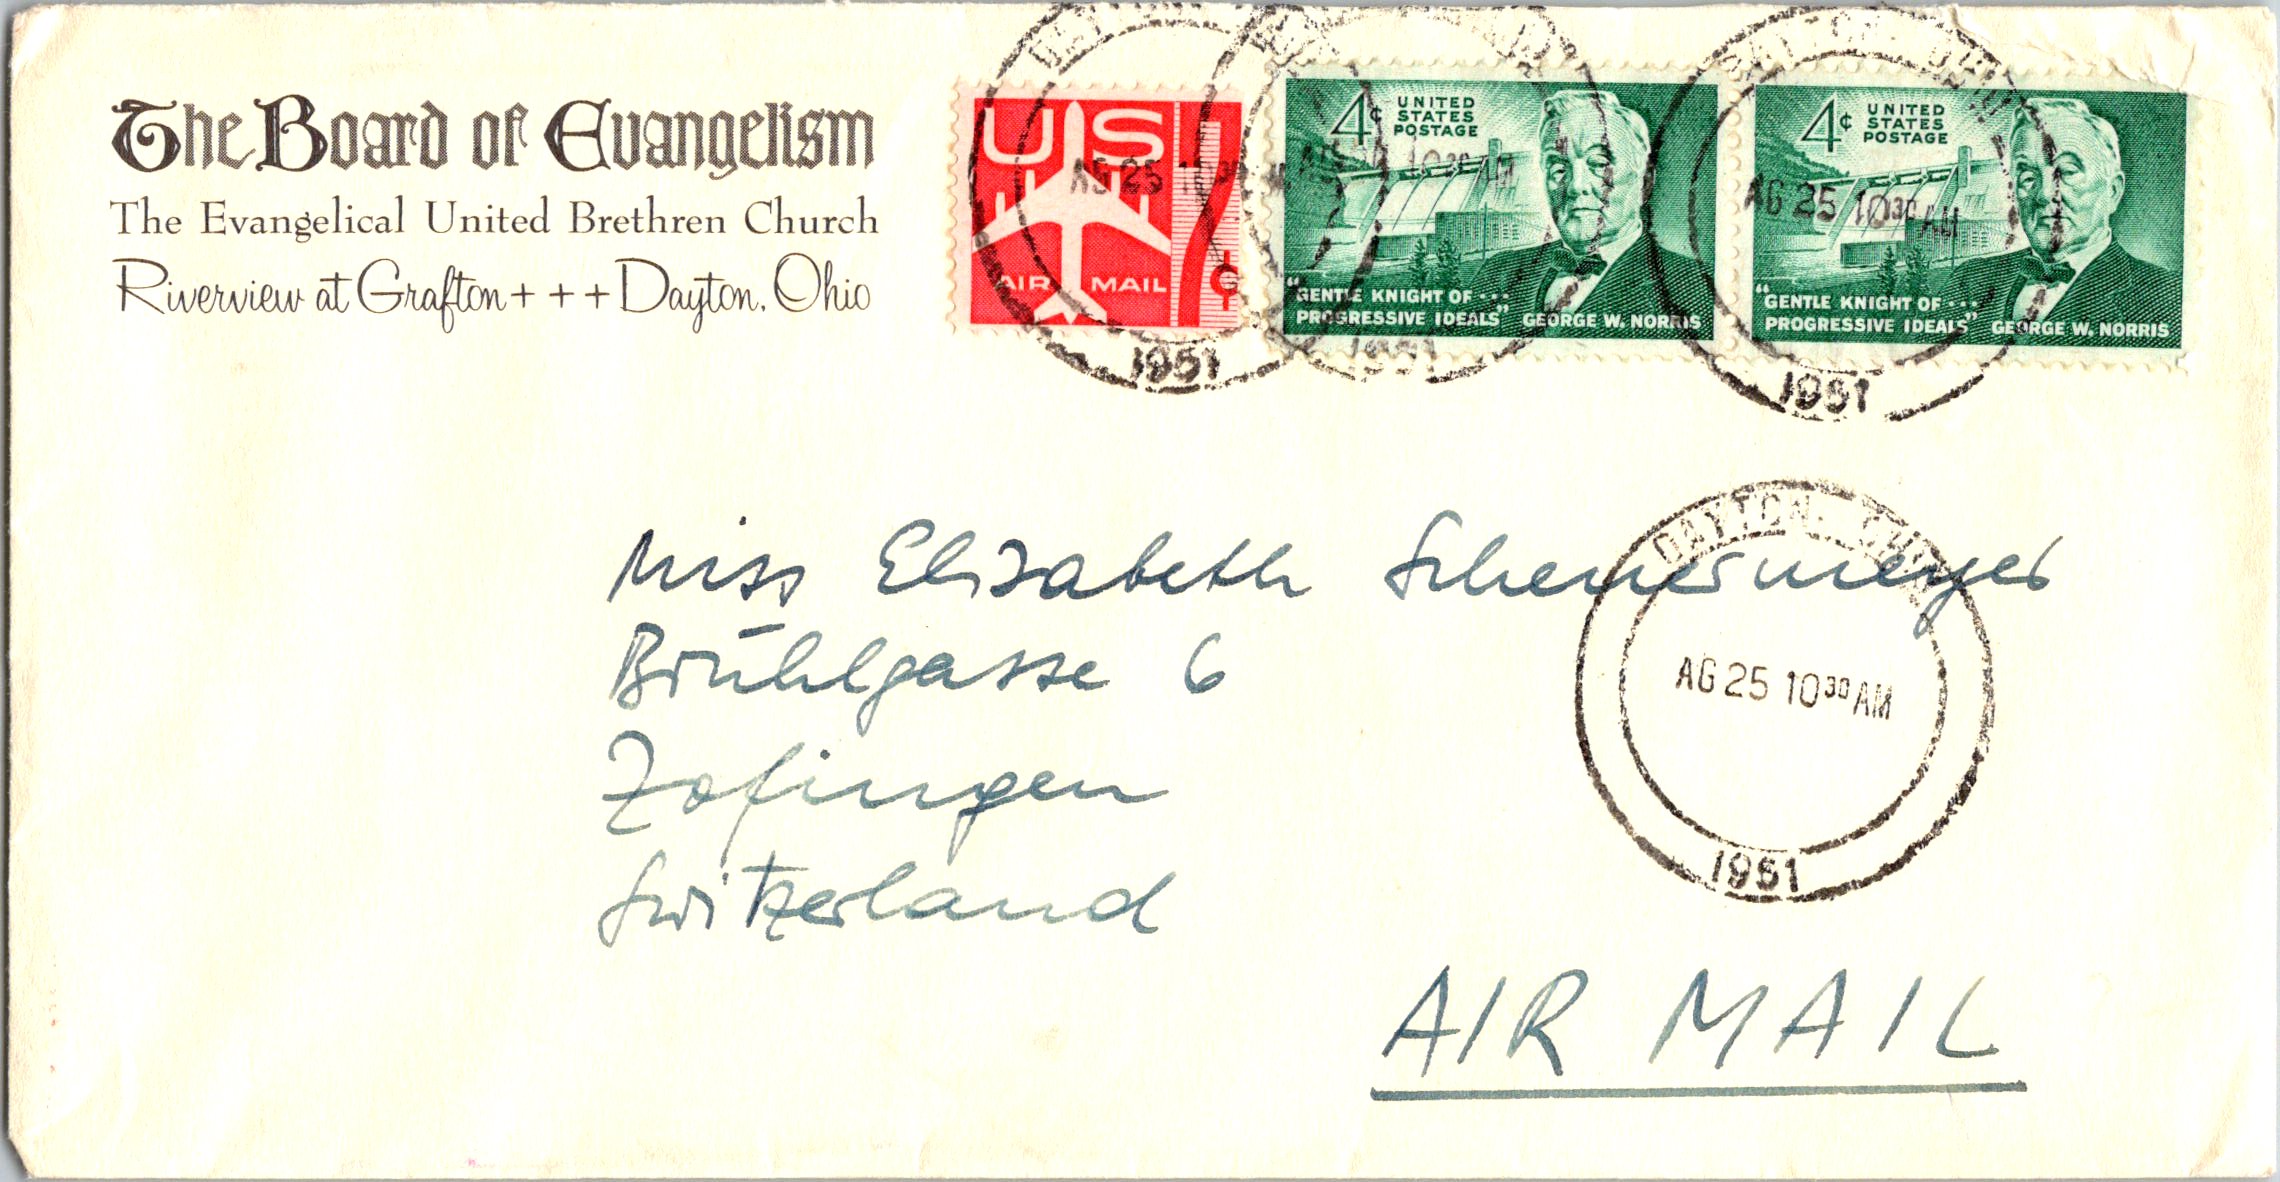 The Board of Evangelism
The Evangelical United Brethren Church
Riverview at Grafton + + + Dayton, Ohio
US
AIR MAIL
7¢
4¢ UNITED
STATES
POSTAGE
"GENTLE KNIGHT OF ...
PROGRESSIVE IDEALS" GEORGE W. NORRIS
4¢ UNITED
STATES
POSTAGE
"GENTLE KNIGHT OF ...
PROGRESSIVE IDEALS" GEORGE W. NORRIS
AG 25 10 30 AM
1961
10 30 AM
1961
DAYTON, OHIO
AG 25 10 30 AM
1961
DAYTON, OHIO
AG 25 10 30 AM
1961
Miss Elisabeth Scheuermeyer
Brühlgasse 6
Zofingen
Switzerland
AIR MAIL